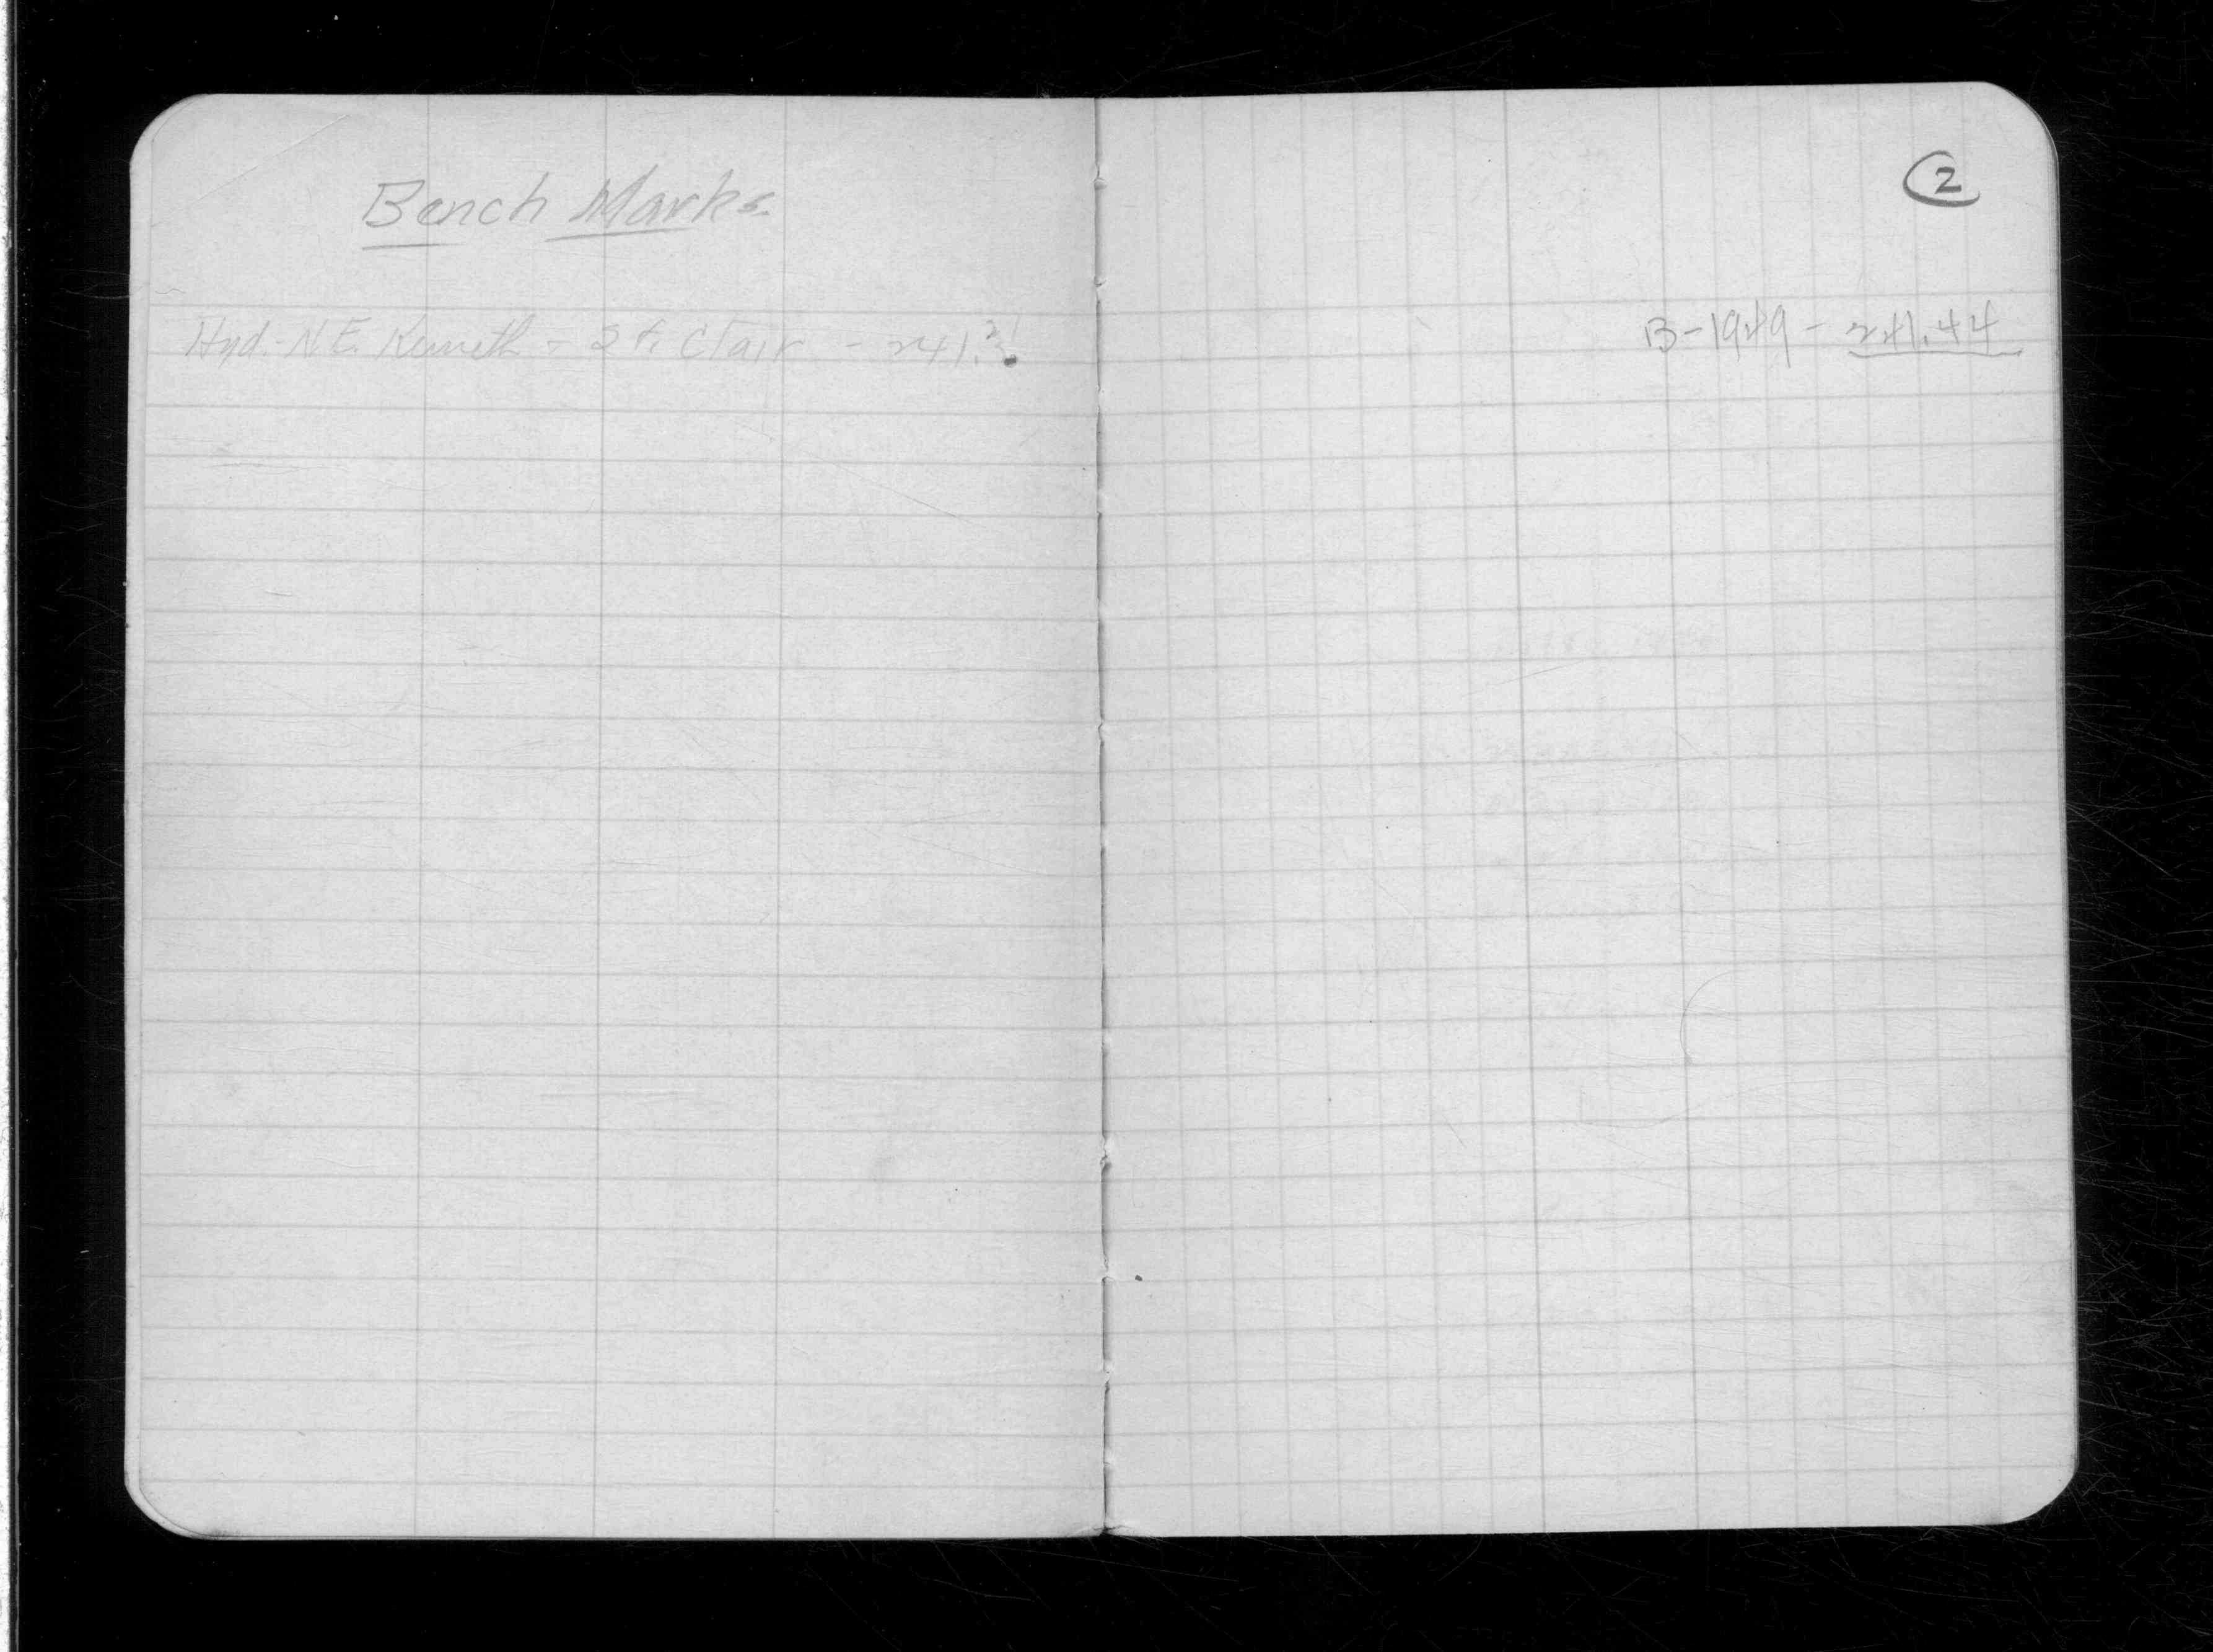 Bench Marks
Hyd. - N.E. Kenneth - St. Clair - 241.
2
B-1949 - 241.44